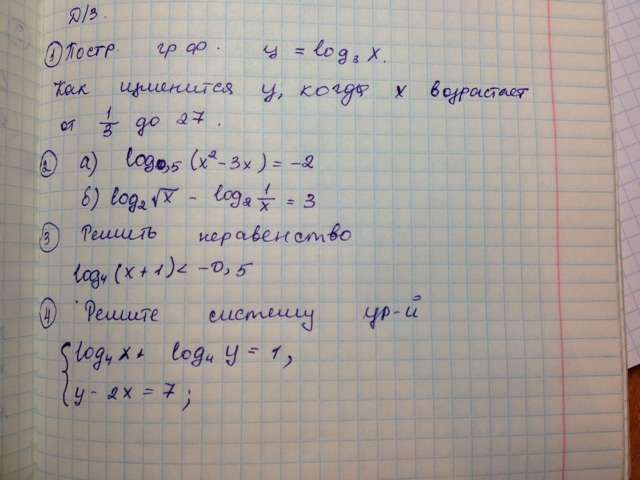 Д/З.
① Постр. граф. y = log₃ x.
Как изменится y, когда x возрастает
от 1/3 до 27.
② а) log₀,₅ (x² - 3x) = -2
б) log₂ √x - log₂ 1/x = 3
③ Решить неравенство
log₄ (x + 1) < -0,5
④ Решите систему ур-й
{ log₄ x + log₄ y = 1,
y - 2x = 7;